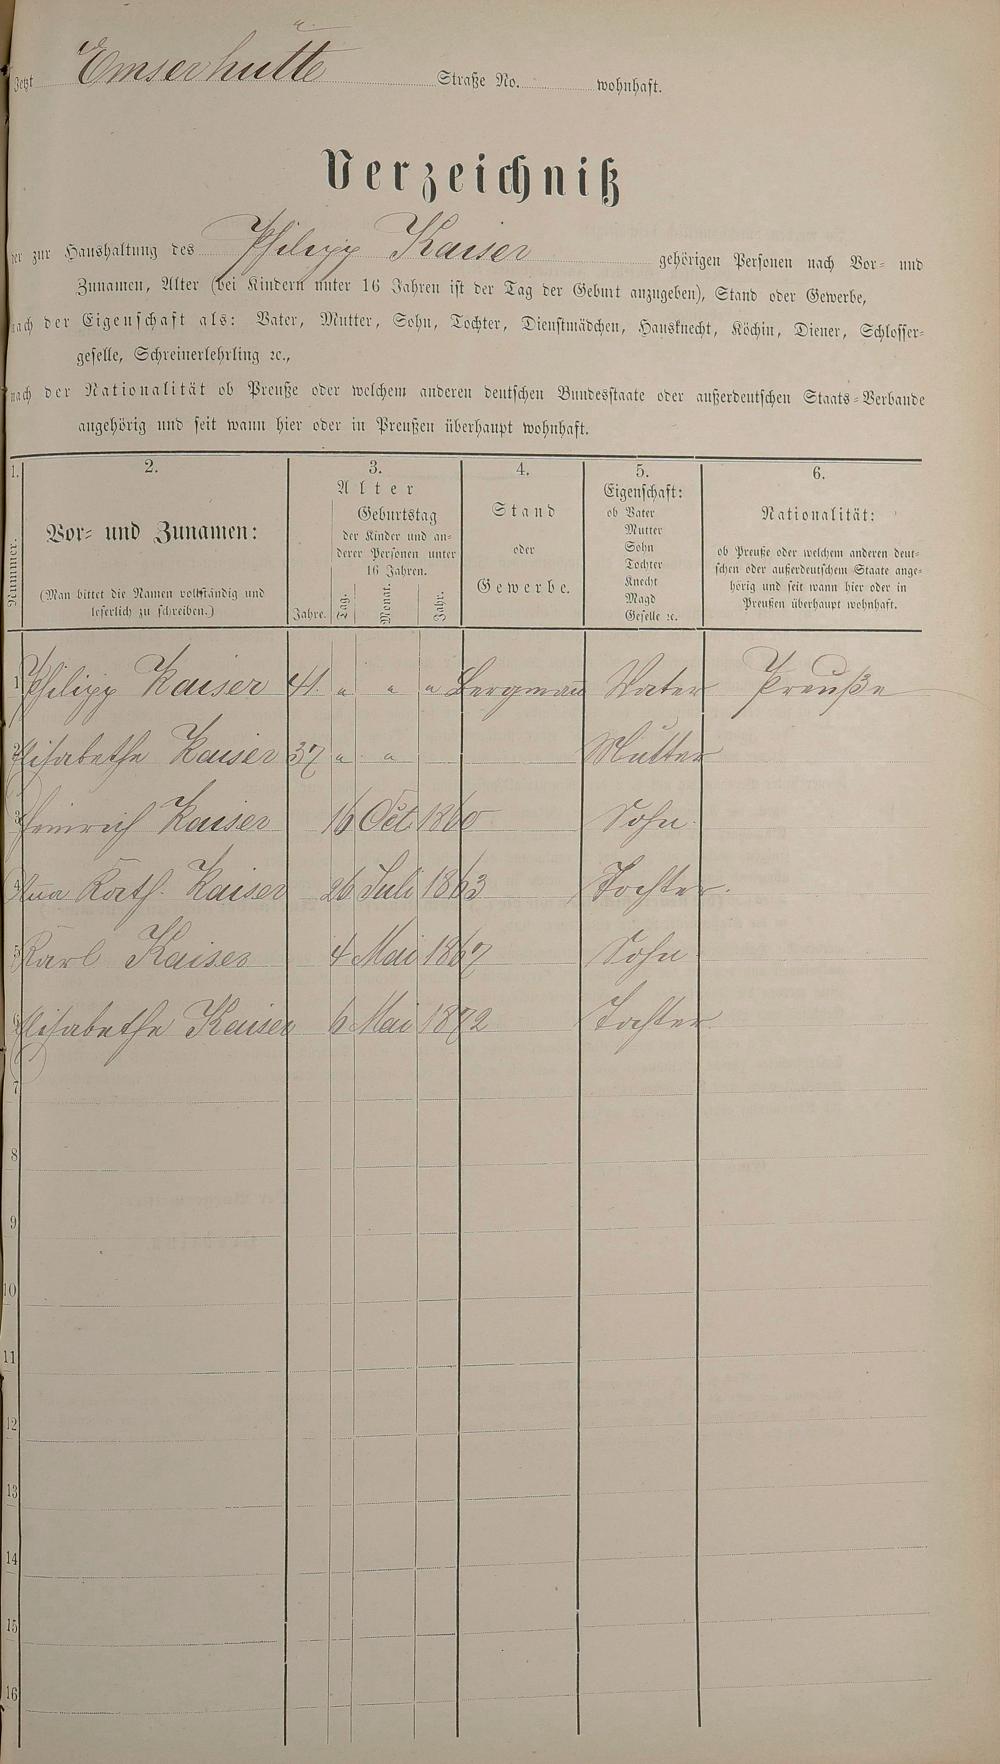 Jetzt Emserhütte Straße No. wohnhaft.
Verzeichniß
der zur Haushaltung des Philipp Kaiser gehörigen Personen nach Vor- und
Zunamen, Alter (bei Kindern unter 16 Jahren ist der Tag der Geburt anzugeben), Stand oder Gewerbe,
nach der Eigenschaft als: Vater, Mutter, Sohn, Tochter, Dienstmädchen, Hausknecht, Köchin, Diener, Schlosser-
geselle, Schreinerlehrling ꝛc.,
nach der Nationalität ob Preuße oder welchem anderen deutschen Bundesstaate oder außerdeutschen Staats-Verbande
angehörig und seit wann hier oder in Preußen überhaupt wohnhaft.
1. 2. 3. 4. 5. 6.
Nummer.
Vor- und Zunamen:
(Man bittet die Namen vollständig und
leserlich zu schreiben.)
Alter
Geburtstag
der Kinder und an-
derer Personen unter
16 Jahren.
Jahre. Tag. Monat. Jahr.
Stand
oder
Gewerbe.
Eigenschaft:
ob Vater
Mutter
Sohn
Tochter
Knecht
Magd
Geselle ꝛc.
Nationalität:
ob Preuße oder welchem anderen deut-
schen oder außerdeutschem Staate ange-
hörig und seit wann hier oder in
Preußen überhaupt wohnhaft.
1 Philipp Kaiser 41. " " " Bergmann Vater Preuße
2 Elisabethe Kaiser 37 " " Mutter
3 Heinrich Kaiser 16 Oct. 1860 Sohn
4 Anna Kath. Kaiser 26 Juli 1863 Tochter.
5 Karl Kaiser 4 Mai 1867 Sohn
6 Elisabethe Kaiser 6 Mai 1872 Tochter
7
8
9
10
11
12
13
14
15
16